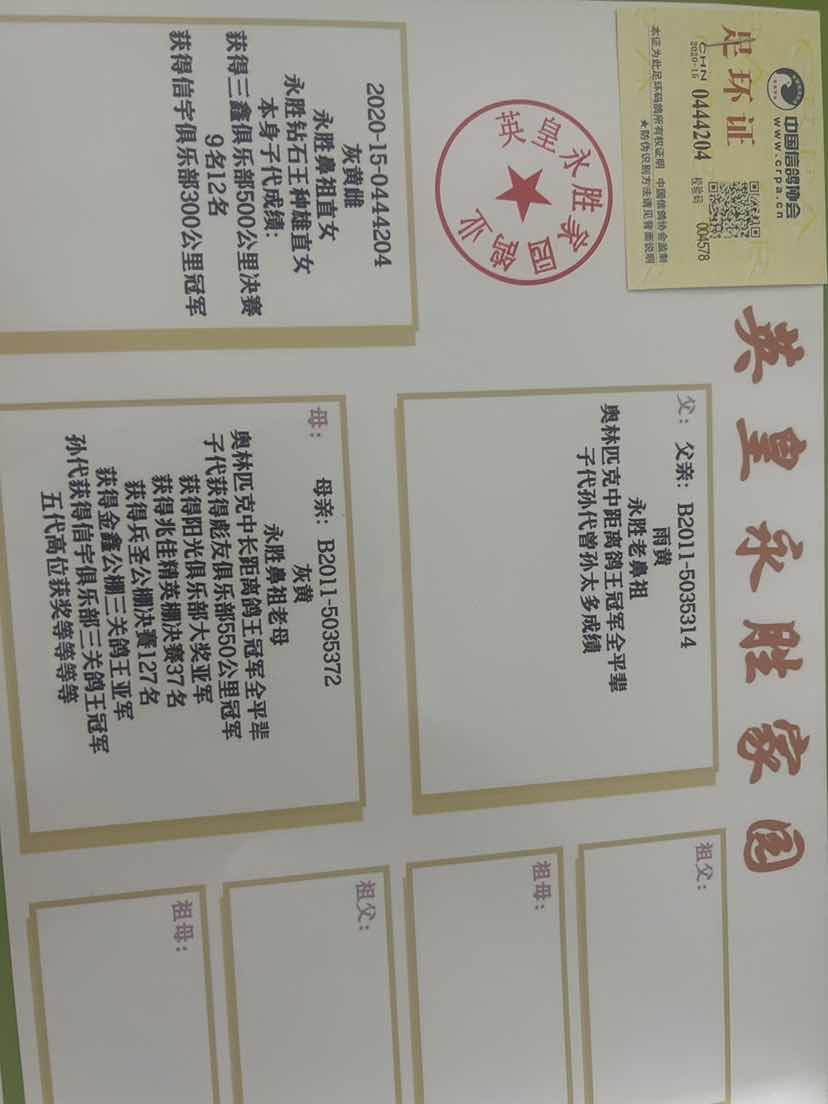 英皇永胜家园
中国信鸽协会
www.crpa.cn
足环证
CHN
2020-15 0444204 校验码 004578
本证为此足环码鸽所有权证明 中国信鸽协会监制
★防伪识别方法请见背面说明
英皇永胜家园
2020-15-0444204
灰黄雌
永胜鼻祖直女
永胜钻石王种雄直女
本身子代成绩:
获得三鑫俱乐部500公里决赛
9名12名
获得信宇俱乐部300公里冠军
父: 父亲: B2011-5035314
雨黄
永胜老鼻祖
奥林匹克中距离鸽王冠军全平辈
子代孙代曾孙太多成绩
母: 母亲: B2011-5035372
灰黄
永胜鼻祖老母
奥林匹克中长距离鸽王冠军全平辈
子代获得彪友俱乐部550公里冠军
获得阳光俱乐部大奖亚军
获得兆佳精英棚决赛37名
获得兵圣公棚决赛127名
获得金鑫公棚三关鸽王亚军
孙代获得信宇俱乐部三关鸽王冠军
五代高位获奖等等等等
祖父:
祖母:
祖父:
祖母: